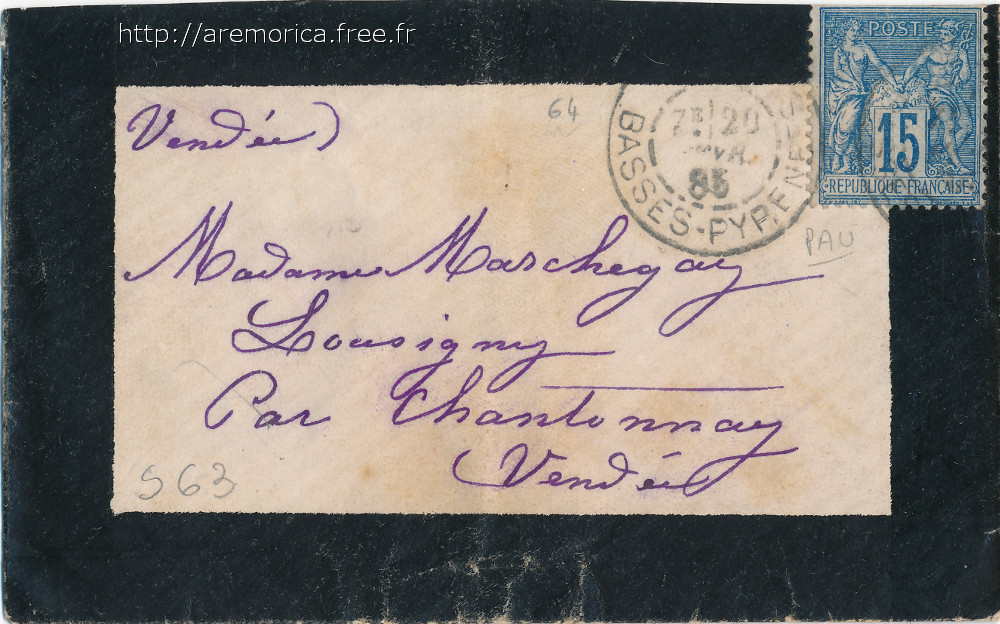 http://aremorica.free.fr
POSTE
15
REPUBLIQUE FRANÇAISE
64
7E 20
85
BASSES-PYRENEES
PAU
Vendée)
Madame Marchegay
Lousigny
Par Chantonnay
Vendée
S63